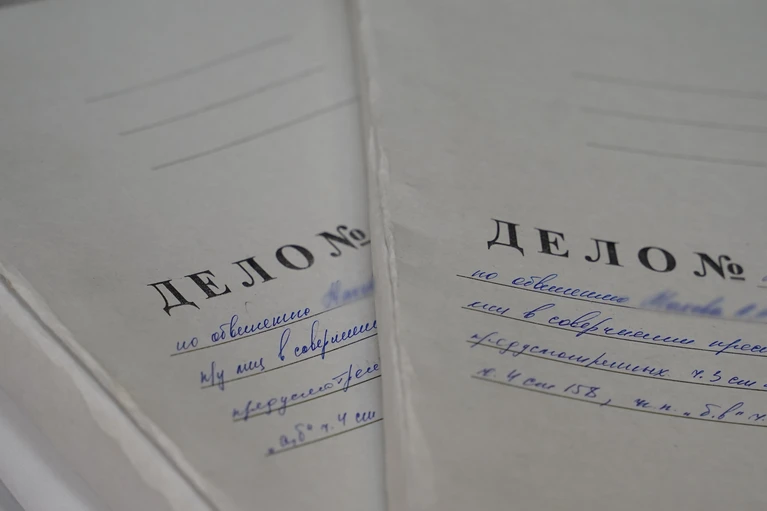 ДЕЛО №
по обвинению
п/у лиц в соверше
предусмотре
„а,б" ч. 4 ст
ДЕЛО №
по обвинению
лиц в совершении прес
предусмотренных ч. 3 ст.
ч. 4 ст 158, ч. п. „б,в" ч.